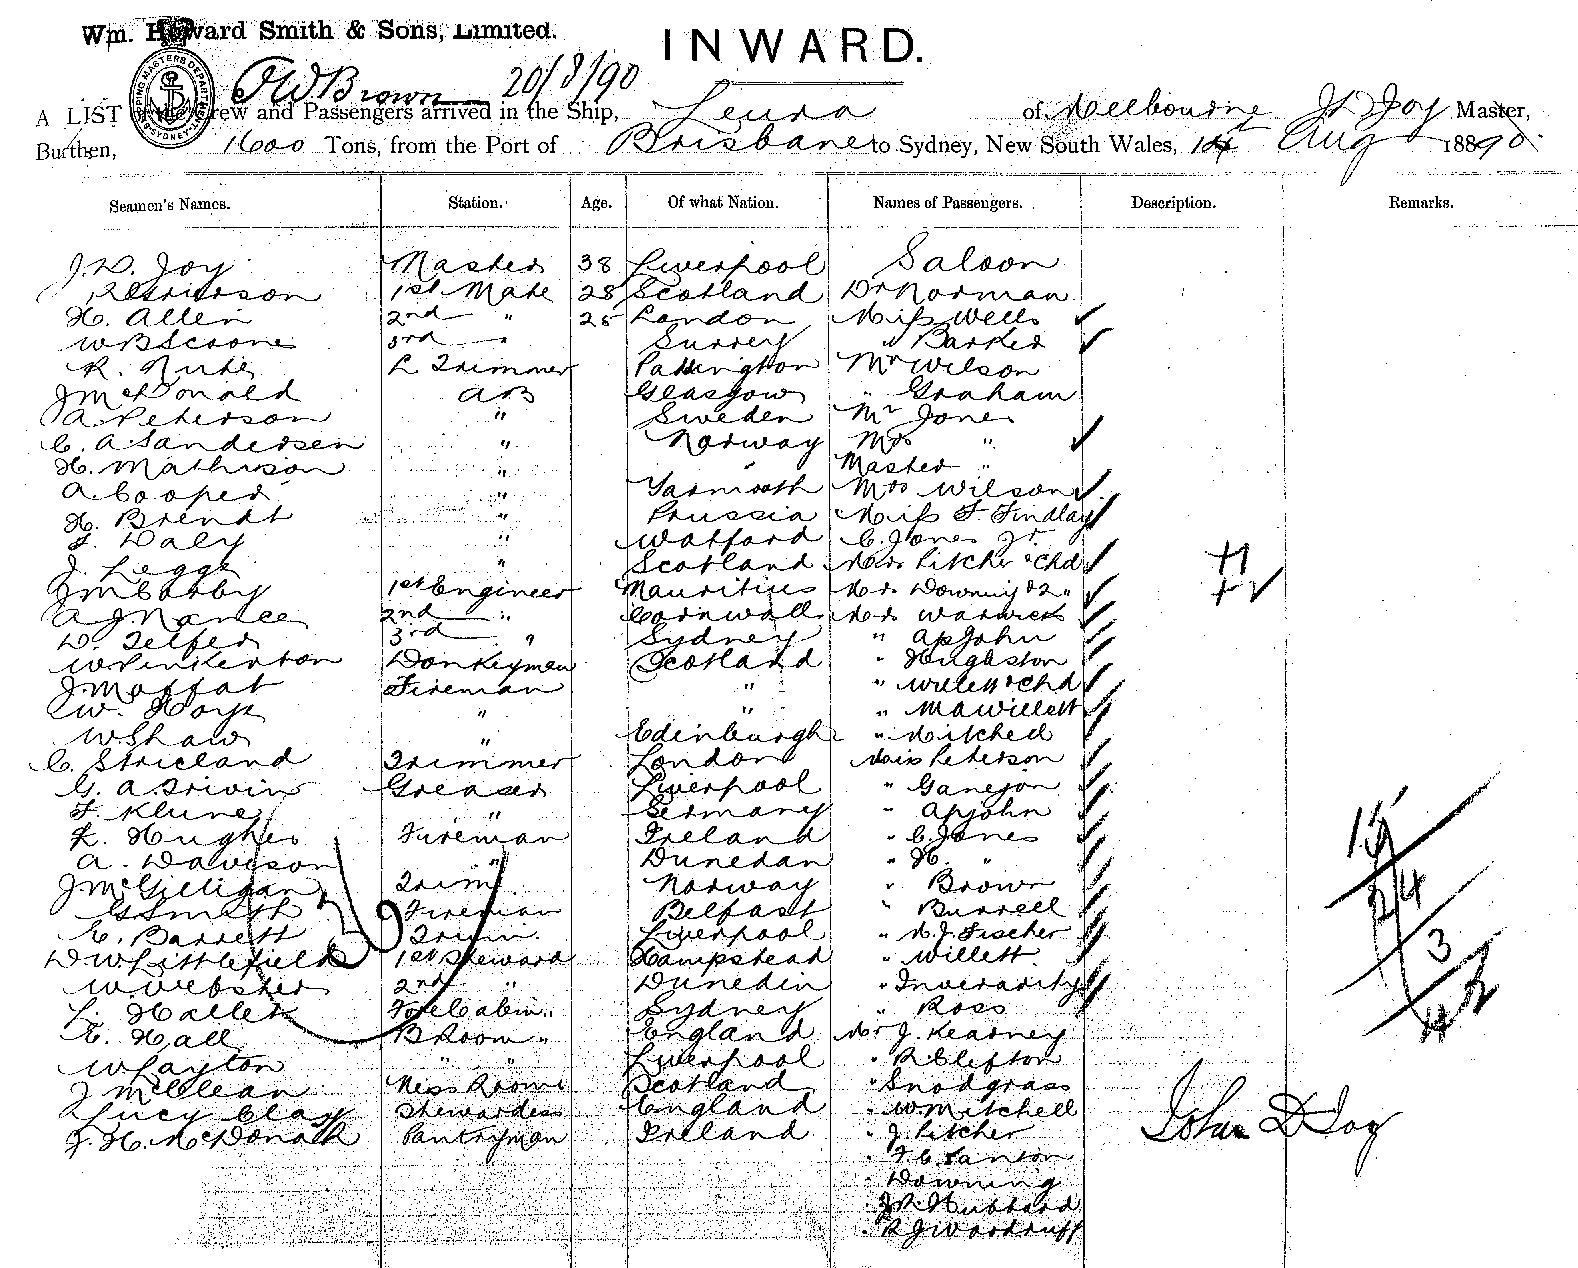 Wm. Howard Smith & Sons, Limited.
INWARD.
Brown 20/8/90
A LIST of the Crew and Passengers arrived in the Ship, Leura of Melbourne Joy Master,
Burthen, 1600 Tons, from the Port of Brisbane to Sydney, New South Wales, Aug 1890.
Seamen's Names. Station. Age. Of what Nation. Names of Passengers. Description. Remarks.
J.D. Joy Master 38 Liverpool Saloon
1st Mate 28 Scotland Dr Norman
H. Allen 2nd " 25 London Miss Wells
3rd " Surrey " Barker
L Trimmer Paddington Mr Wilson
J McDonald AB Glasgow " Graham
A Peterson " Sweden Mr Jones
C. A Sandersen " Norway Mrs "
H. Mathison " " Master "
A. Cooper " Yarmouth Mrs Wilson
H. Brendt " Prussia Miss F. Findlay
F. Daly " Watford C. Jones Jr.
J. Legge " Scotland Mrs Pitcher & Chd
1st Engineer Mauritius Mrs Downing & 2 "
A J. Nance 2nd " Cornwall Mrs Warwick
D. Telfer 3rd " Sydney " Apjohn
W Pinkerton Donkeyman Scotland " Hugheston
J. Moffat Fireman " " Willett & Chd
W. " " " M A Willett
W Shaw " Edinburgh " Mitchell
C. Stricland Trimmer London Miss Peterson
G. A. Greaser Liverpool "
F. Klune " Germany " Apjohn
Hughes Fireman Ireland " C. Jones
A. Davison " Dunedin " H. "
J McGilligan Trim. Norway " Brown
G Smith Fireman Belfast " Burrell
E. Barrett Trim. Liverpool " M. J. Fischer
D W Littlefield 1st Steward Hampstead " Willett
W. Webster 2nd " Dunedin " Inverarity
L. Hallett Fore Cabin " Sydney " Ross
E. Hall B Room " England Mr J. Kearney
W Layton " " Liverpool " R Clifton
J McClean Mess Room Scotland " Snodgrass
Lucy Clay Stewardess England " W Mitchell
J. H. McDonald Pantryman Ireland " J. Pitcher
"
" Downing
" Hubbard
" R J Woodruff
15
24
3
42
John D Joy